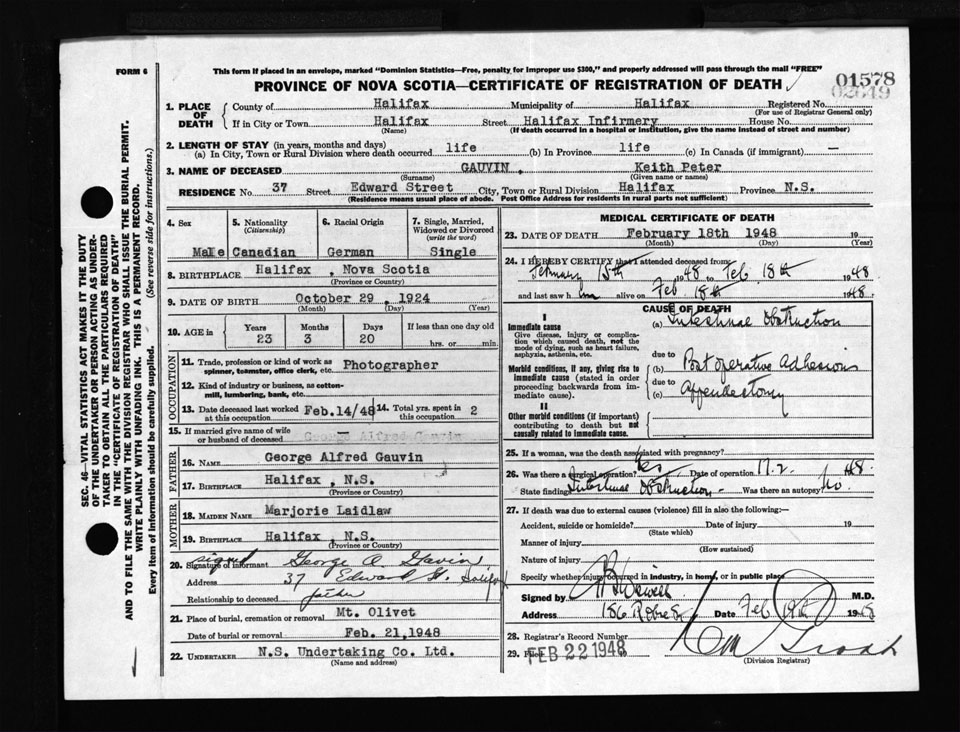 FORM 6
This form if placed in an envelope, marked "Dominion Statistics—Free, penalty for improper use $300," and properly addressed will pass through the mail "FREE"
PROVINCE OF NOVA SCOTIA—CERTIFICATE OF REGISTRATION OF DEATH
01578
02049
1. PLACE OF DEATH
County of Halifax Municipality of Halifax Registered No.
(For use of Registrar General only)
If in City or Town Halifax Street Halifax Infirmery House No.
(Name) (If death occurred in a hospital or institution, give the name instead of street and number)
2. LENGTH OF STAY (in years, months and days)
(a) In City, Town or Rural Division where death occurred life (b) In Province life (c) In Canada (if immigrant) —
3. NAME OF DECEASED GAUVIN , Keith Peter
(Surname) (Given name or names)
RESIDENCE No. 37 Street Edward Street City, Town or Rural Division Halifax Province N.S.
(Residence means usual place of abode. Post Office Address for residents in rural parts not sufficient)
4. Sex 5. Nationality (Citizenship) 6. Racial Origin 7. Single, Married, Widowed or Divorced (write the word)
Male Canadian German Single
8. BIRTHPLACE Halifax , Nova Scotia
(Province or Country)
9. DATE OF BIRTH October 29 , 1924
(Month) (Day) (Year)
10. AGE in Years Months Days If less than one day old
23 3 20 hrs. or min.
OCCUPATION
11. Trade, profession or kind of work as spinner, teamster, office clerk, etc. Photographer
12. Kind of industry or business, as cotton-mill, lumbering, bank, etc.
13. Date deceased last worked at this occupation Feb.14/48 14. Total yrs. spent in this occupation 2
15. If married give name of wife or husband of deceased — George Alfred Gauvin
FATHER
16. NAME George Alfred Gauvin
17. BIRTHPLACE Halifax , N.S.
(Province or Country)
MOTHER
18. MAIDEN NAME Marjorie Laidlaw
19. BIRTHPLACE Halifax , N.S.
(Province or Country)
20. Signature of informant signed George A. Gauvin
Address 37 Edward St. Halifax
Relationship to deceased father
21. Place of burial, cremation or removal Mt. Olivet
Date of burial or removal Feb. 21,1948
22. UNDERTAKER N.S. Undertaking Co. Ltd.
(Name and address)
MEDICAL CERTIFICATE OF DEATH
23. DATE OF DEATH February 18th 1948 19
(Month) (Day) (Year)
24. I HEREBY CERTIFY that I attended deceased from:
February 15th 1948 to Feb 18th 1948
and last saw h im alive on Feb 18th 1948.
CAUSE OF DEATH
I
Immediate cause
Give disease, injury or complication which caused death, not the mode of dying, such as heart failure, asphyxia, asthenia, etc.
(a) Intestinal Obstruction
due to
Morbid conditions, if any, giving rise to immediate cause (stated in order proceeding backwards from immediate cause).
(b) Post operative Adhesions
due to
(c) Appendectomy
II
Other morbid conditions (if important) contributing to death but not causally related to immediate cause.
25. If a woman, was the death associated with pregnancy?
26. Was there a surgical operation? Yes Date of operation 17.2. 1948.
State findings Intestinal Obstruction - Was there an autopsy? No.
27. If death was due to external causes (violence) fill in also the following:—
Accident, suicide or homicide? Date of injury 19
(State which)
Manner of injury
(How sustained)
Nature of injury
Specify whether injury occurred in industry, in home, or in public place
Signed by M.D.
Address 186 Date Feb 19th 1948
28. Registrar's Record Number
29. Filed FEB 22 1948
(Division Registrar)
SEC. 46—VITAL STATISTICS ACT MAKES IT THE DUTY OF THE UNDERTAKER OR PERSON ACTING AS UNDERTAKER TO OBTAIN ALL THE PARTICULARS REQUIRED IN THE "CERTIFICATE OF REGISTRATION OF DEATH" AND TO FILE THE SAME WITH THE DIVISION REGISTRAR WHO SHALL ISSUE THE BURIAL PERMIT.
WRITE PLAINLY WITH UNFADING INK. THIS IS A PERMANENT RECORD.
Every item of Information should be carefully supplied. (See reverse side for instructions.)